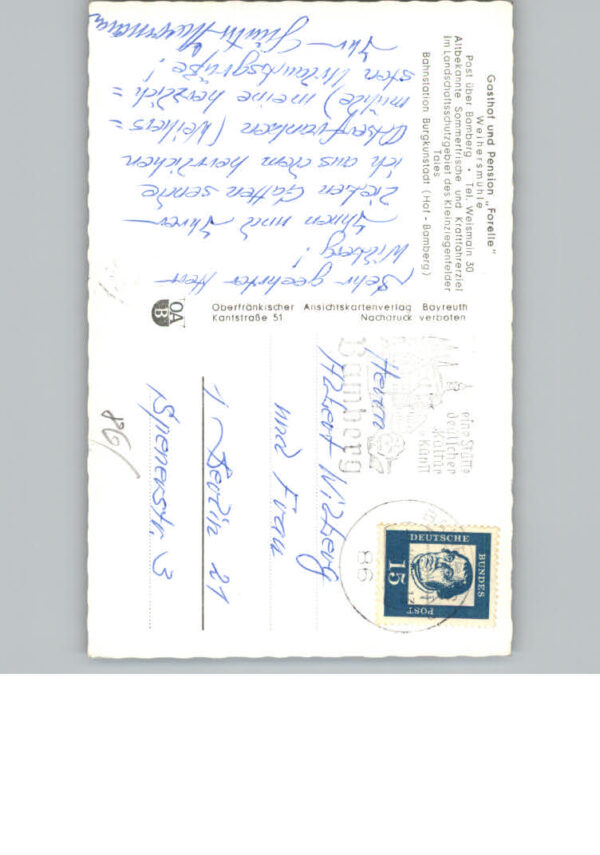 Gasthof und Pension „Forelle"
Weihersmühle
Post über Bamberg • Tel. Weismain 30
Altbekannte Sommerfrische und Kraftfahrerziel
im Landschaftsschutzgebiet des Kleinziegenfelder
Tales
Bahnstation Burgkunstadt (Hof - Bamberg)
Sehr geehrter Herr
Wizberg!
Ihnen und Ihrer
lieben Gattin sende
ich aus dem herrlichen
Oberfranken (Weihers=
mühle) meine herzlich=
sten Urlaubsgrüße!
Ihr
OA
B
Oberfränkischer Ansichtskartenverlag Bayreuth
Kantstraße 51 Nachdruck verboten
eine Stätte
deutscher
Kultur
Kunst
Bamberg
86
DEUTSCHE
BUNDES
POST
15
Herrn
Albert Wizberg
und Frau
1 Berlin 21
Spenerstr. 3